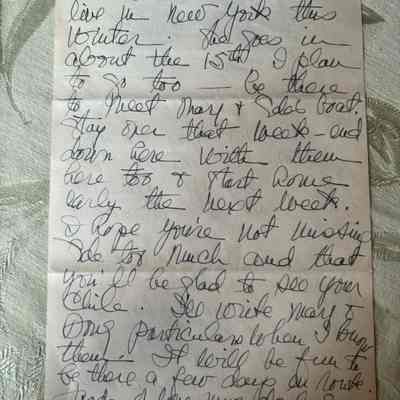 live in New York this
winter. She goes in
about the 15th I plan
to go too — be there
to meet Mary & boat.
Stay over that week-end
down here with them
here too & start home
early the next week.
I hope you're not missing
too much and that
you'll be glad to see your
I'll write Mary &
Doug particulars when I know
them. It will be fun to
be there a few days en route.